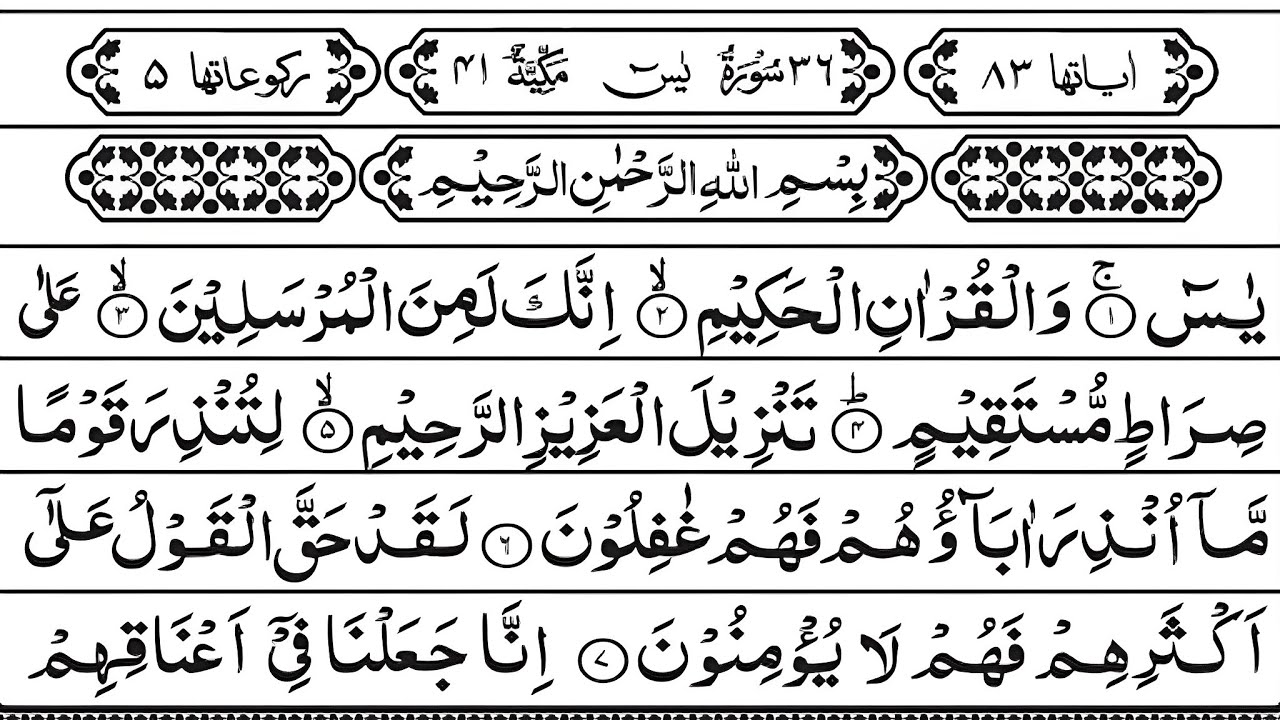 اٰياتها ٨٣ ٣٦ سُوْرَةُ يٰسٓ مَكِّيَّةٌ ٤١ ركوعاتها ٥
بِسْمِ اللّٰهِ الرَّحْمٰنِ الرَّحِيْمِ
يٰسٓ ۚ﴿١﴾ وَالْقُرْاٰنِ الْحَكِيْمِ ۙ﴿٢﴾ اِنَّكَ لَمِنَ الْمُرْسَلِيْنَ ۙ﴿٣﴾ عَلٰى
صِرَاطٍ مُّسْتَقِيْمٍ ؕ﴿٤﴾ تَنْزِيْلَ الْعَزِيْزِ الرَّحِيْمِ ۙ﴿٥﴾ لِتُنْذِرَ قَوْمًا
مَّاۤ اُنْذِرَ اٰبَآؤُهُمْ فَهُمْ غٰفِلُوْنَ ﴿٦﴾ لَقَدْ حَقَّ الْقَوْلُ عَلٰۤى
اَكْثَرِهِمْ فَهُمْ لَا يُؤْمِنُوْنَ ﴿٧﴾ اِنَّا جَعَلْنَا فِيْۤ اَعْنَاقِهِمْ